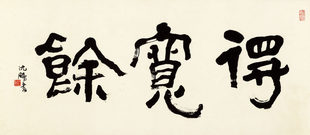 得寬餘
沈鵬書